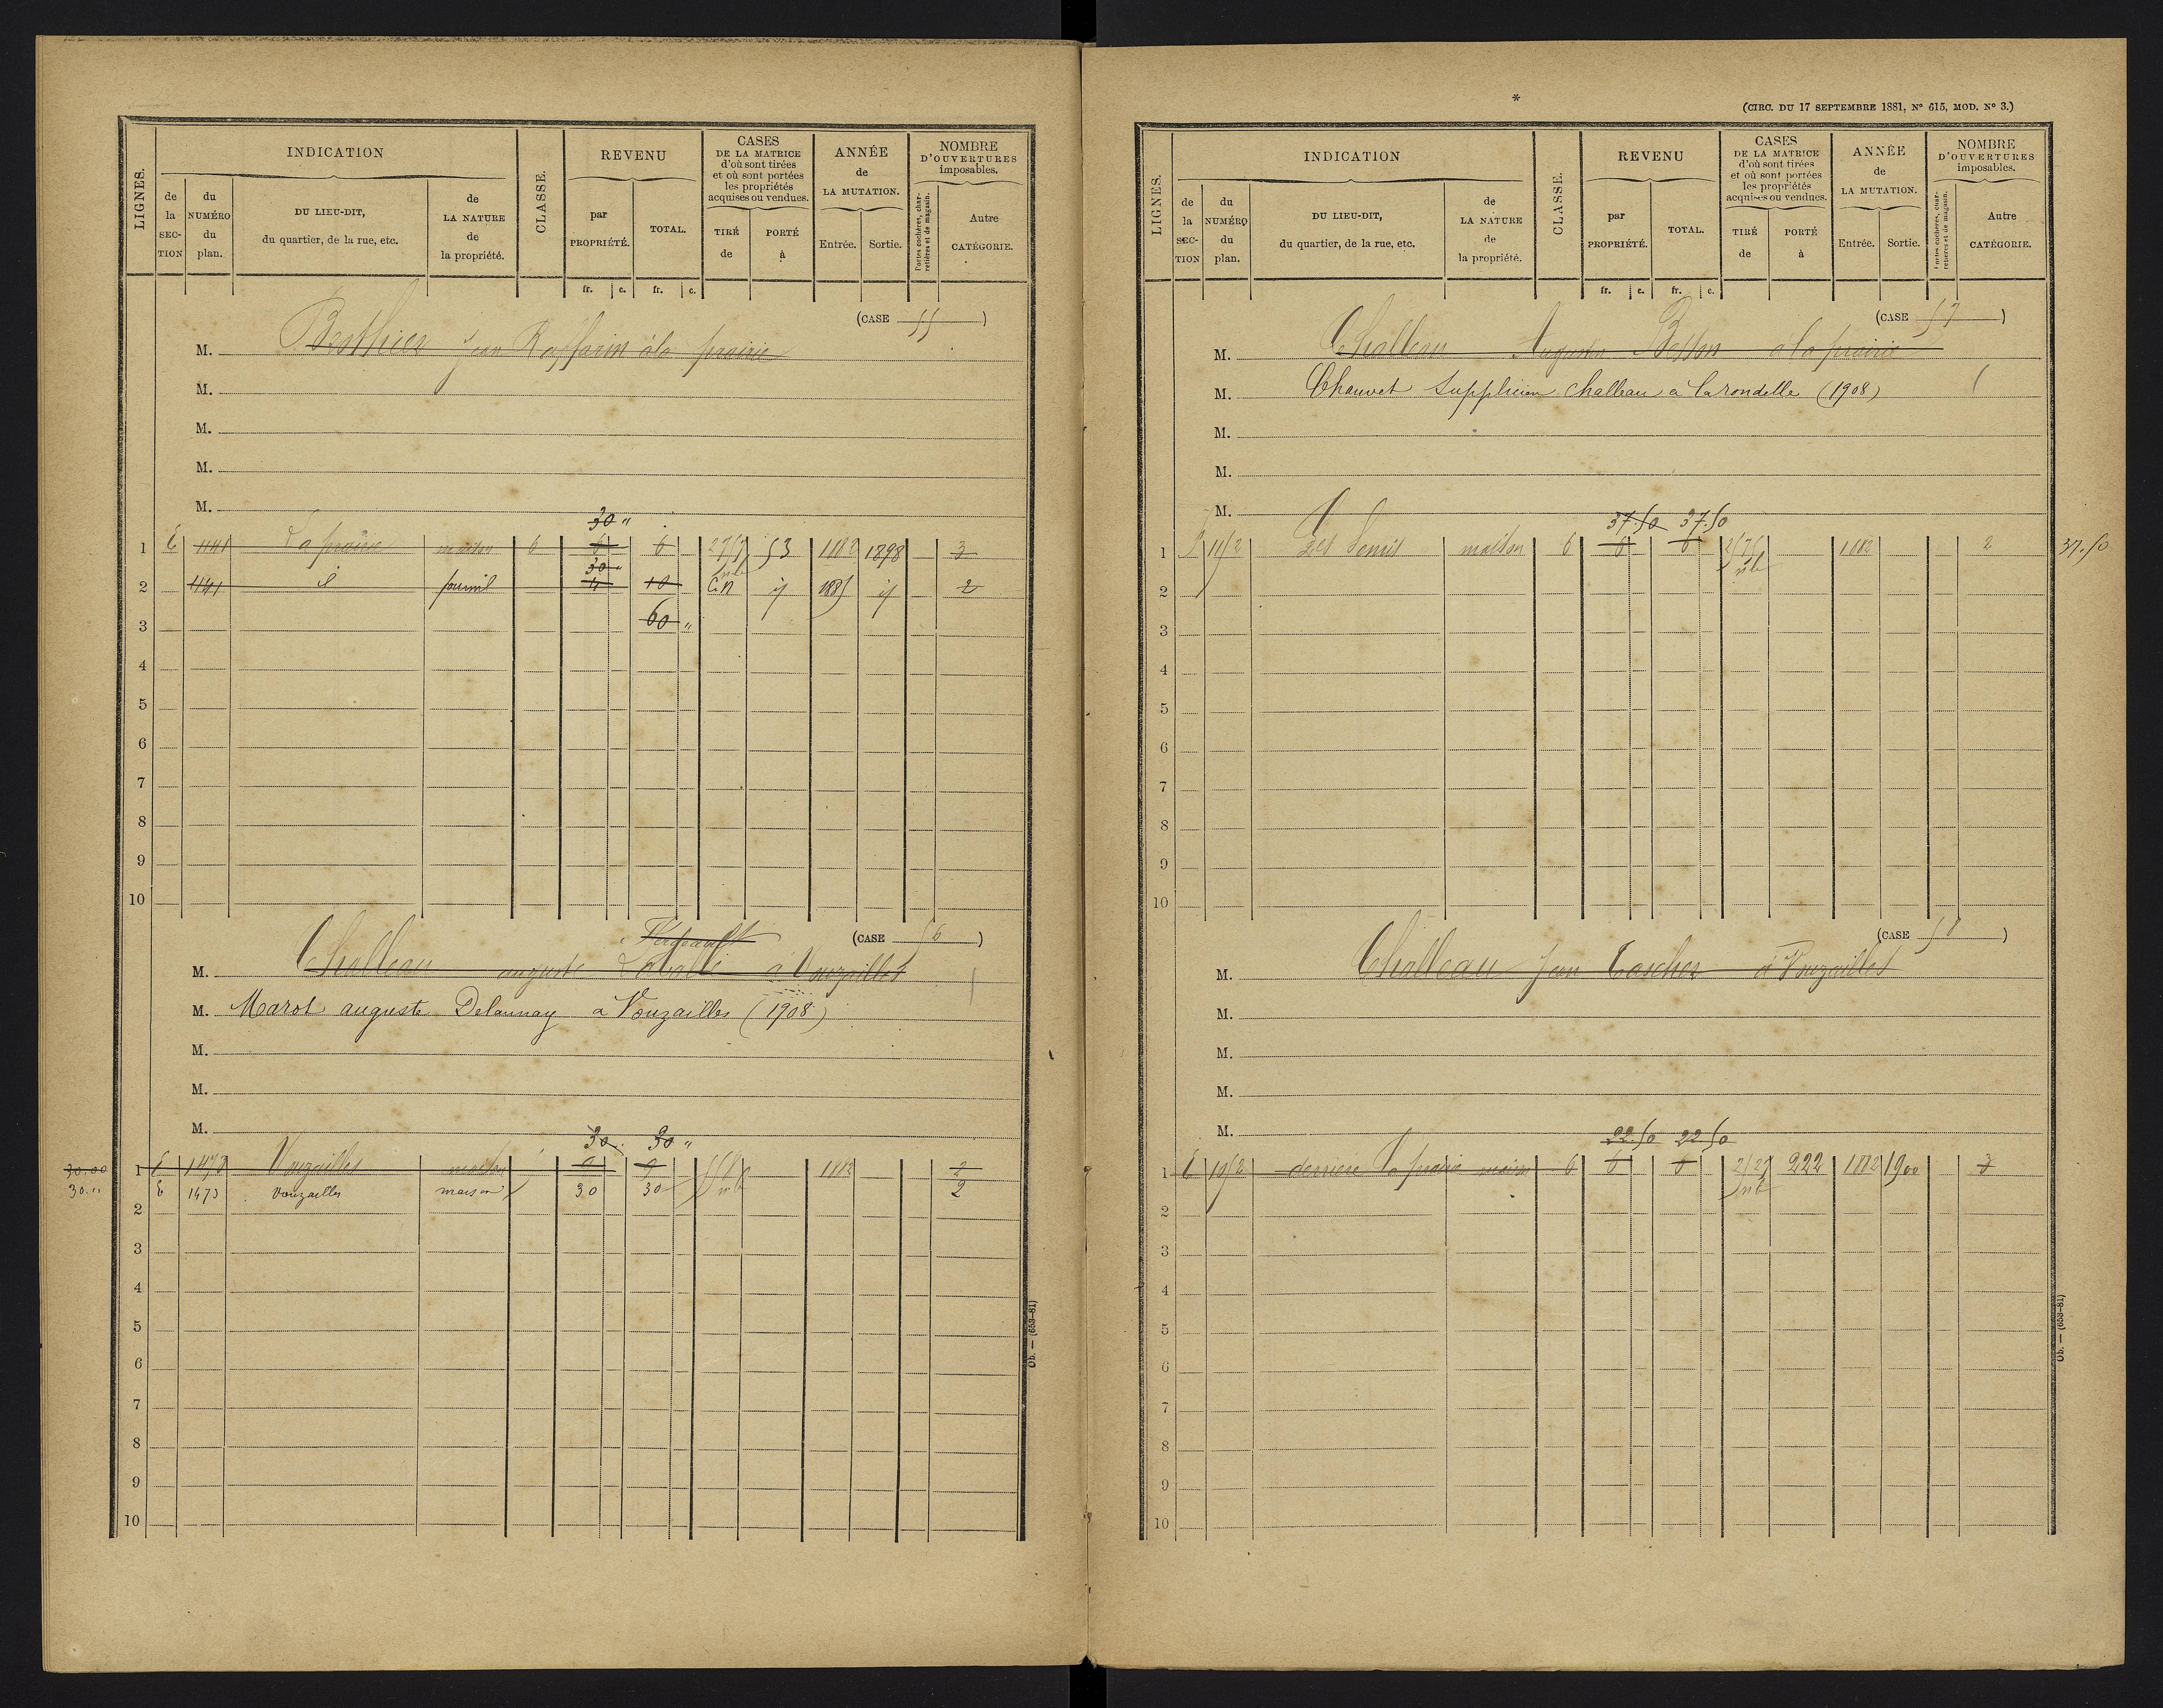 LIGNES.
INDICATION
de la SECTION
du NUMÉRO du plan.
DU LIEU-DIT, du quartier, de la rue, etc.
de LA NATURE de la propriété.
CLASSE.
REVENU
par PROPRIÉTÉ.
TOTAL.
CASES DE LA MATRICE d'où sont tirées et où sont portées les propriétés acquises ou vendues.
TIRÉ de
PORTÉ à
ANNÉE de LA MUTATION.
Entrée.
Sortie.
NOMBRE D'OUVERTURES imposables.
Portes cochères, charretières et de magasin.
Autre CATÉGORIE.
fr. c. fr. c.
(CASE 55)
M. Berthier Jean Raffarin à la prairie
M.
M.
M.
M.
30 "
1 E 1141 La prairie maison 6 6 6 53 1882 1898 3
30 "
2 1141 id fournil 4 10 C.N id 1885 id 2
3 60 "
4
5
6
7
8
9
10
(CASE 56)
M. Challeau auguste à Vouzailles
M. Marot auguste Delaunay a Vouzailles (1908)
M.
M.
M.
30 30 "
30.00 1 E 1473 Vouzailles maison 1882 2
30. " E 1473 Vouzailles maison 30 30 2
2
3
4
5
6
7
8
9
10
Ob. — (653-81)
*
(CIRC. DU 17 SEPTEMBRE 1881, N° 615, MOD. N° 3.)
LIGNES.
INDICATION
de la SECTION
du NUMÉRO du plan.
DU LIEU-DIT, du quartier, de la rue, etc.
de LA NATURE de la propriété.
CLASSE.
REVENU
par PROPRIÉTÉ.
TOTAL.
CASES DE LA MATRICE d'où sont tirées et où sont portées les propriétés acquises ou vendues.
TIRÉ de
PORTÉ à
ANNÉE de LA MUTATION.
Entrée.
Sortie.
NOMBRE D'OUVERTURES imposables.
Portes cochères, charretières et de magasin.
Autre CATÉGORIE.
fr. c. fr. c.
(CASE 57)
M. Challeau Augustin Besson a la prairie
M. Chauvet Supplicien Challeau a Larondelle (1908)
M.
M.
M.
37.50 37.50
1 maison 6 6 6 1882 2 37.50
2
3
4
5
6
7
8
9
10
(CASE 58)
M. Challeau Jean Tascher à Vouzailles
M.
M.
M.
M.
22.50 22.50
1 E derriere La prairie maison 6 6 6 222 1882 1900 3
2
3
4
5
6
7
8
9
10
Ob. — (653-81)